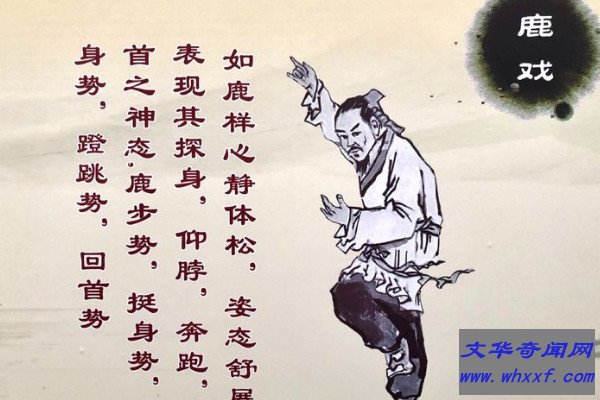 鹿戏
如鹿样心静体松，姿态舒展
表现其探身，仰脖，奔跑，
首之神态.鹿步势，挺身势，
身势，蹬跳势，回首势
文华奇闻网
www.whxxf.com